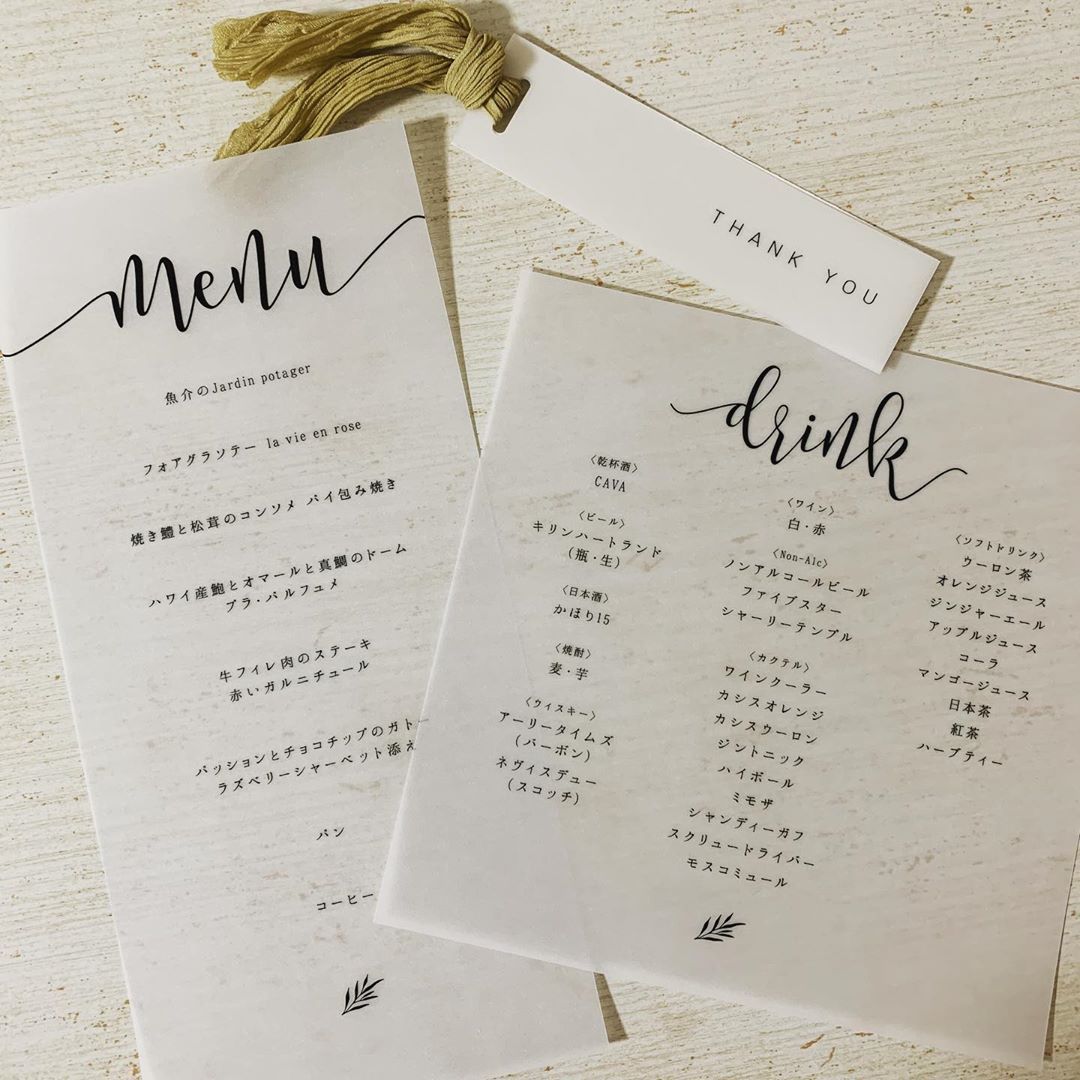 THANK YOU
menu
魚介のJardin potager
フォアグラソテー la vie en rose
焼き鱧と松茸のコンソメ パイ包み焼き
ハワイ産鮑とオマールと真鯛のドーム
ブラ・パルフュメ
牛フィレ肉のステーキ
赤いガルニチュール
パッションとチョコチップのガトー
ラズベリーシャーベット添え
パン
コーヒー
drink
〈乾杯酒〉
CAVA
〈ビール〉
キリンハートランド
(瓶・生)
〈日本酒〉
かほり15
〈焼酎〉
麦・芋
〈ウィスキー〉
アーリータイムズ
(バーボン)
ネヴィスデュー
(スコッチ)
〈ワイン〉
白・赤
〈Non-Alc〉
ノンアルコールビール
ファイブスター
シャーリーテンプル
〈カクテル〉
ワインクーラー
カシスオレンジ
カシスウーロン
ジントニック
ハイボール
ミモザ
シャンディーガフ
スクリュードライバー
モスコミュール
〈ソフトドリンク〉
ウーロン茶
オレンジジュース
ジンジャーエール
アップルジュース
コーラ
マンゴージュース
日本茶
紅茶
ハーブティー